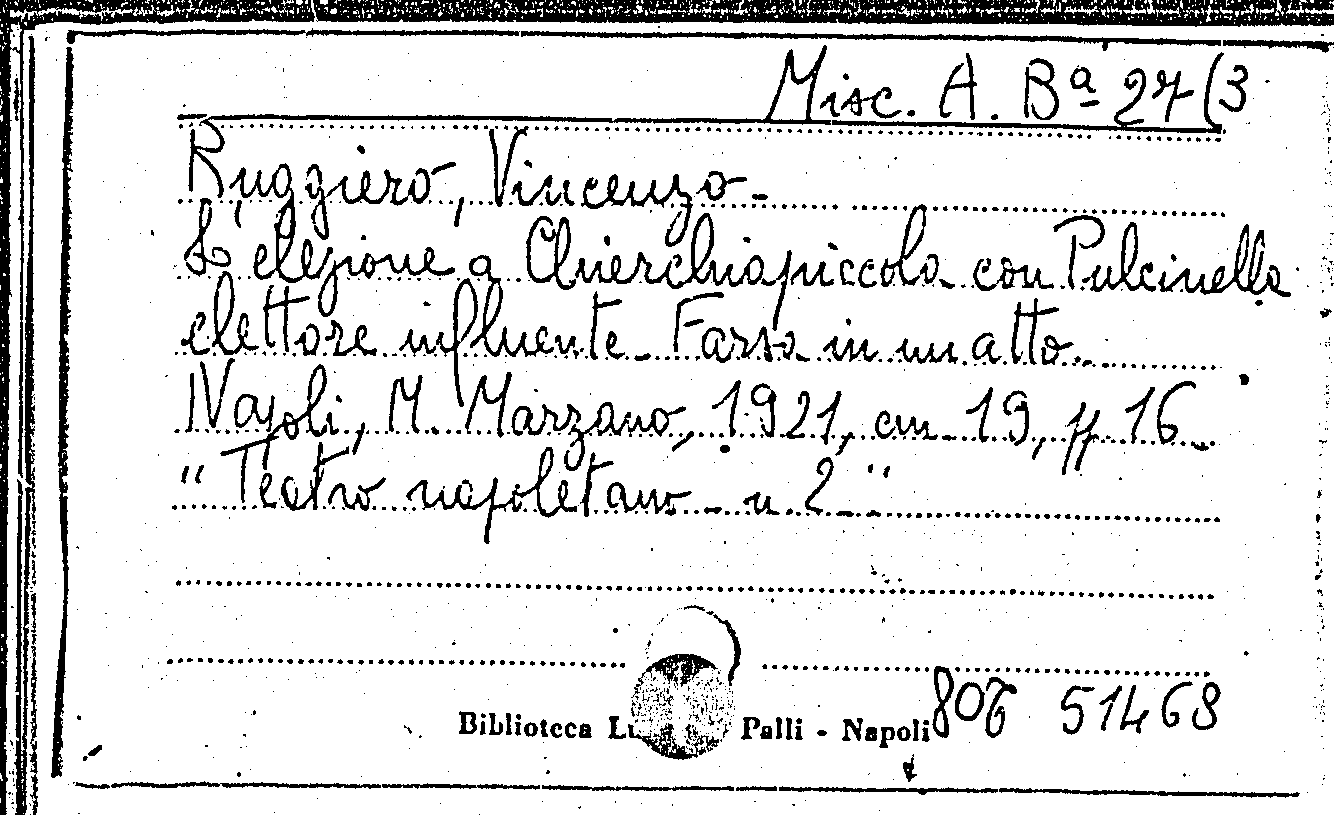 Misc. A. Bª 27(3
Ruggiero, Vincenzo-
L'elezione a Chierchiapiccola con Pulcinella
elettore influente_ Farsa in un atto._
Napoli, M. Marzano, 1921, cm. 19, pp. 16_
"Teatro napoletano_ n. 2_"
Biblioteca Lu Palli - Napoli
51468